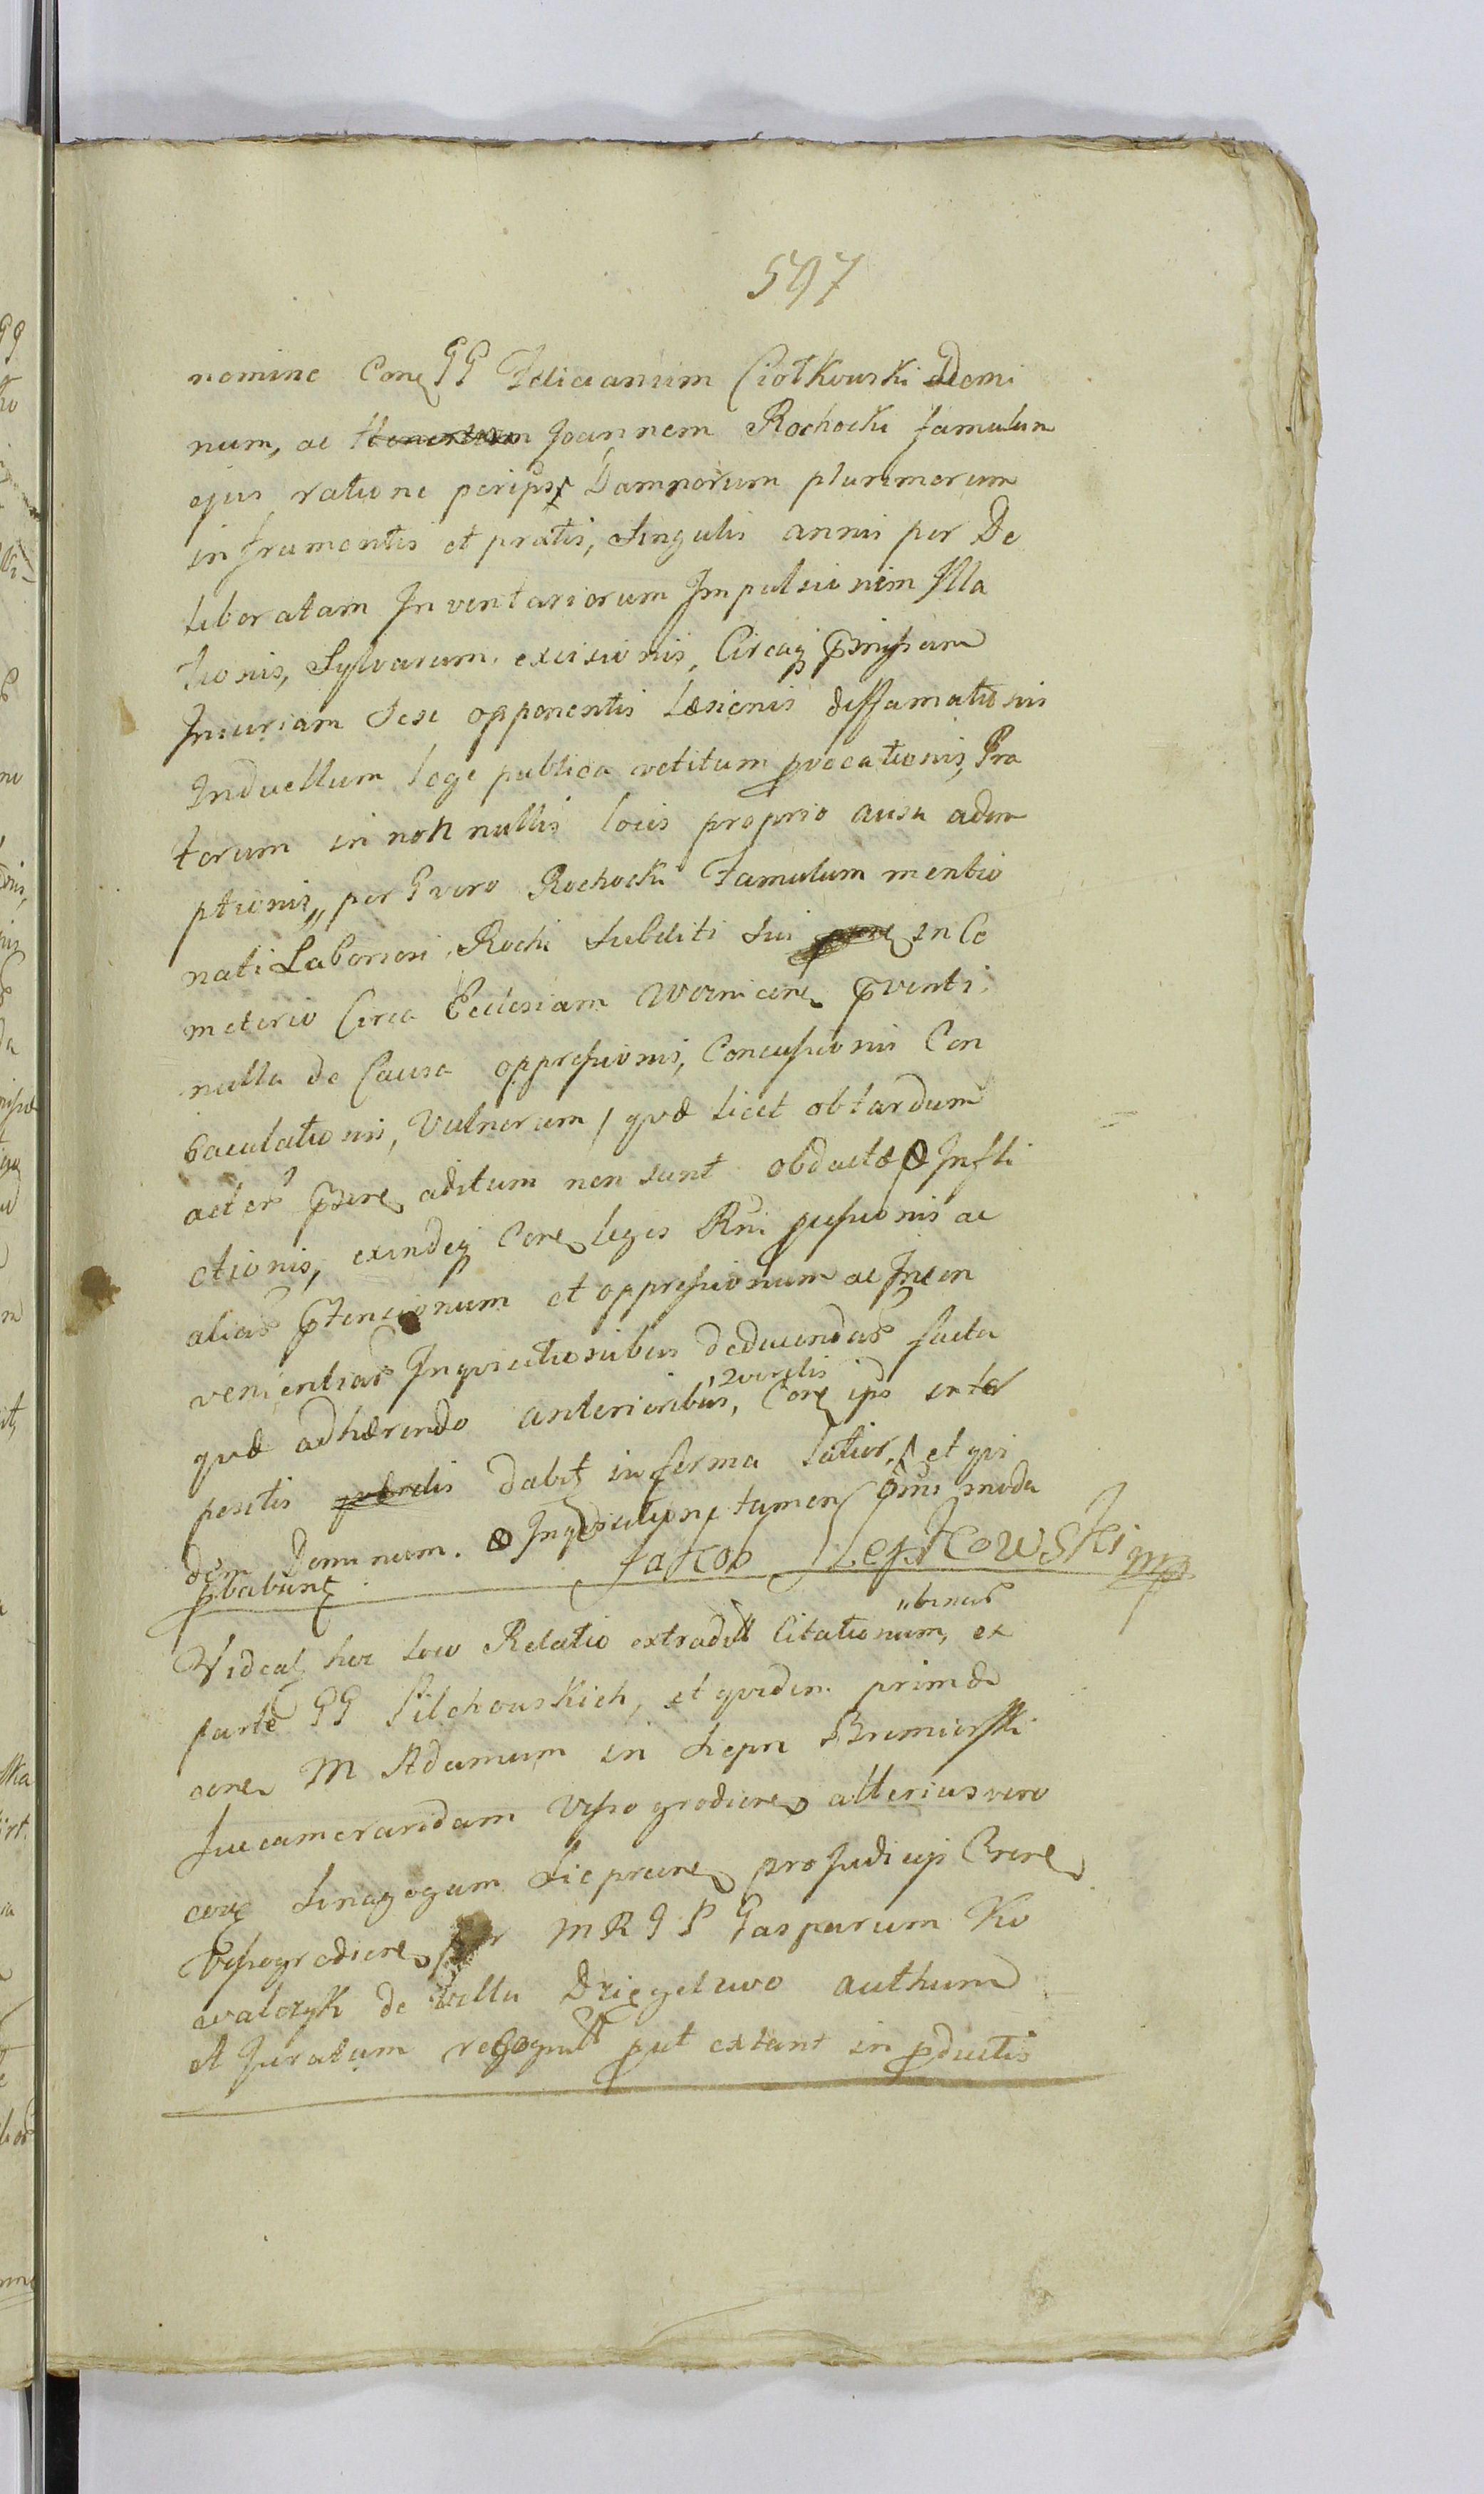 597
nomine Cong GG Felicianum Ciołkowski Domi
num, ac Joannem Rochocki famulum
ejus ratione per ipsos Damnorum plurimorum
in frumentis et pratis, singulis annis per De
liberatam Inventariorum Impulsionem Illa
tionis, Sylvarum excisionis, Circaq
Iniuriam sese opponentis Læsionis diffamationis
In duellum lege publica vetitum pvocationis, Pra
torum in non nullis locis proprio ausu adem
ptionis, per G vero Rochocki Famulum mentio
nati Laboriosi Rochi subditi sui in Ce
meterio Circa Ecclesiam pventi
nulla de Causa oppressionis, Concussionis Con
baculationis, Vulnerum / quæ licet ob tardum
actor aditum non sunt obductæ Infli
ctionis, exindeq Cone legis Rni ac
aliar ptensionum et oppressionum ac In con
venientiar Inquisitionibus deducendar facta
quæ adhærendo anterioribus, Cone ips inter
positis dabit in forma latior, et qui
dem Dominum. Inquisitione tamen omni moda
pbabunt Jakob Lepkowski mp
Videat hic loco Relatio extradit Citationum, binar ex
parte GG Pilchowskich, et quidem primæ
cone M Adamum in Sieprc
Succameraridam Wyssogrodiens alterius vero
cong Sinagogam Sieprcens pro Judicys
Wyssogrodiens per M R G P Gasparum Ko
walczyk de Villa Dzięgelewo authum
et Juratum recognit put extant in pductis